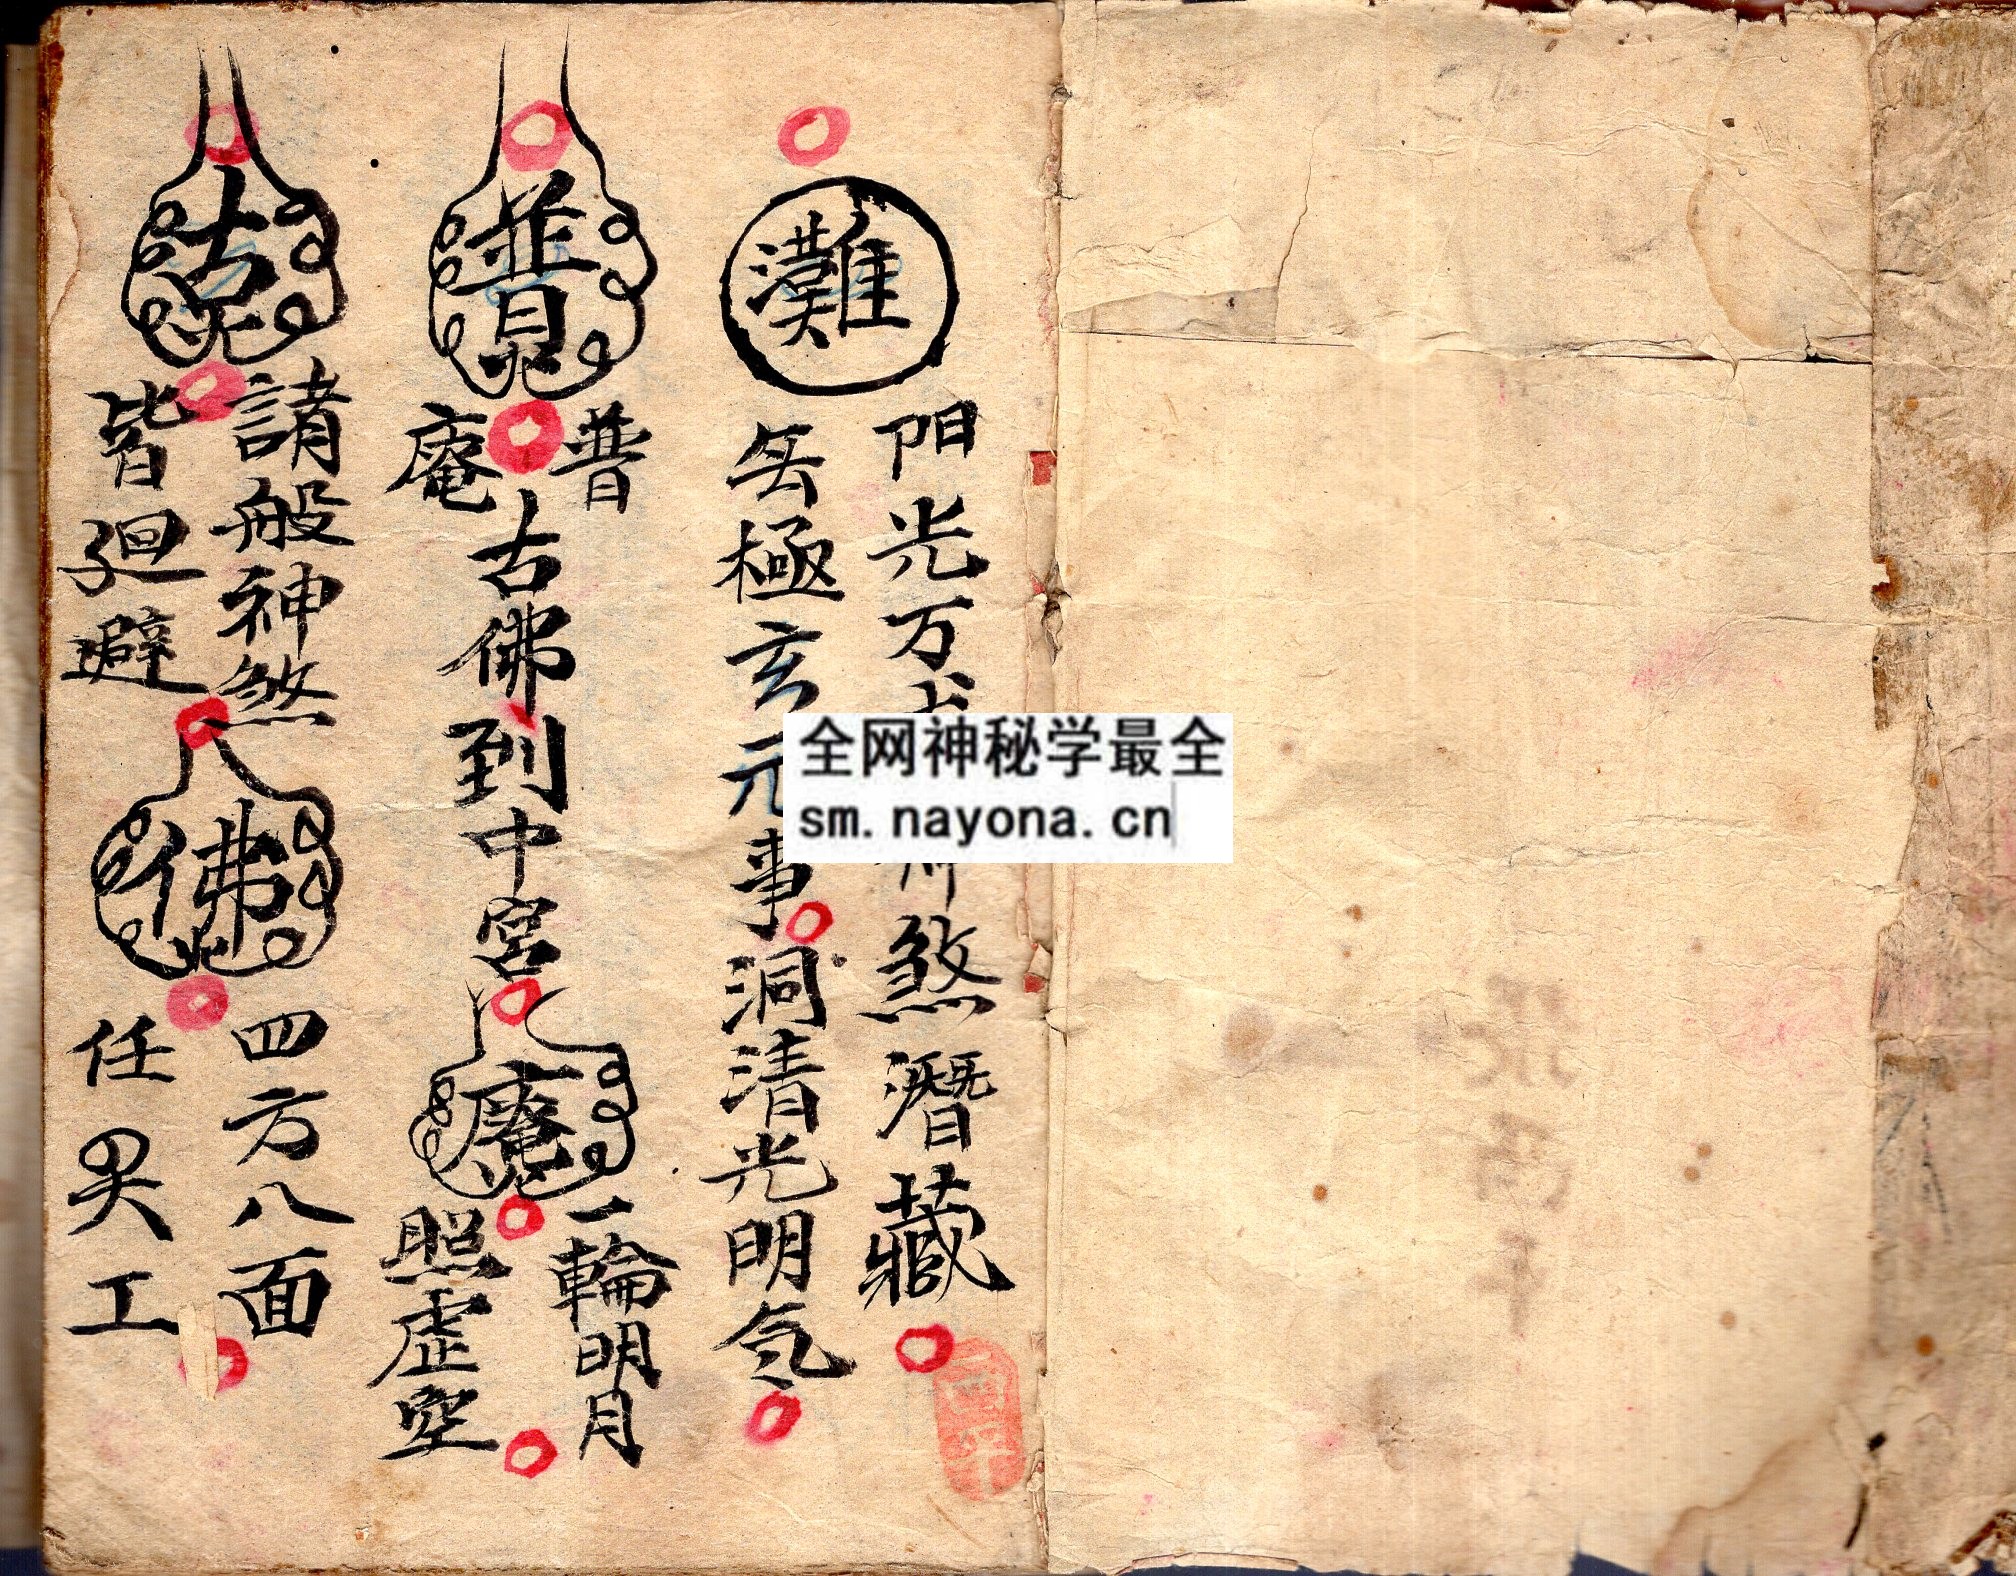 灘
阳光万
煞潛藏
无極玄元事洞清光明氛
普
普
庵
古佛到中宮
庵
一輪明月
照虛空
古
諸般神煞
皆迴避
佛
四方八面
任
工
全网神秘学最全
sm.nayona.cn